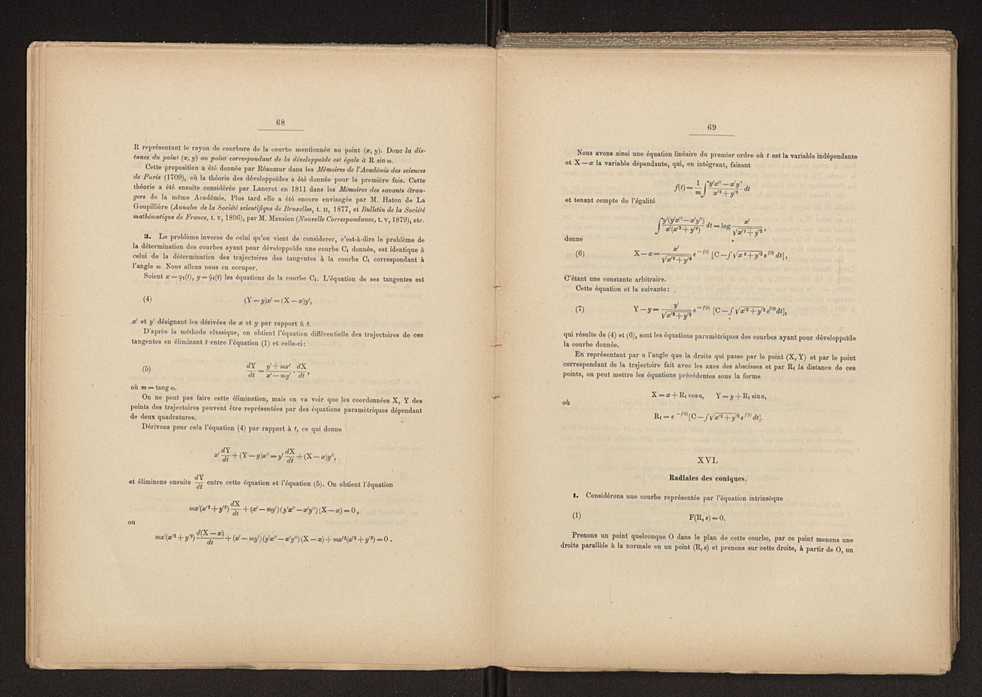 68
R représentant le rayon de courbure de la courbe mentionnée au point (x, y). Donc la dis-
tance du point (x, y) au point correspondant de la développoïde est égale à R sin ω.
Cette proposition a été donnée par Réaumur dans les Mémoires de l'Académie des sciences
de Paris (1709), où la théorie des développoïdes a été donnée pour la première fois. Cette
théorie a été ensuite considérée par Lancret en 1811 dans les Mémoires des savants étran-
gers de la même Académie. Plus tard elle a été encore envisagée par M. Haton de La
Goupillière (Annales de la Société scientifique de Bruxelles, t. II, 1877, et Bulletin de la Société
mathématique de France, t. V, 1890), par M. Mansion (Nouvelle Correspondance, t. V, 1879), etc.
2. Le problème inverse de celui qu'on vient de considérer, c'est-à-dire le problème de
la détermination des courbes ayant pour développoïde une courbe C₁ donnée, est identique à
celui de la détermination des trajectoires des tangentes à la courbe C₁ correspondant à
l'angle ω. Nous allons nous en occuper.
Soient x = φ₁(t), y = φ₂(t) les équations de la courbe C₁. L'équation de ses tangentes est
(4) (Y − y)x' = (X − x)y',
x' et y' désignant les dérivées de x et y par rapport à t.
D'après la méthode classique, on obtient l'équation différentielle des trajectoires de ces
tangentes en éliminant t entre l'équation (1) et celle-ci:
(5) dY/dt = (y' + mx')/(x' − my') dX/dt,
où m = tang ω.
On ne peut pas faire cette élimination, mais on va voir que les coordonnées X, Y des
points des trajectoires peuvent être représentées par des équations paramétriques dépendant
de deux quadratures.
Dérivons pour cela l'équation (4) par rapport à t, ce qui donne
x' dY/dt + (Y − y)x'' = y' dX/dt + (X − x)y'',
et éliminons ensuite dY/dt entre cette équation et l'équation (5). On obtient l'équation
mx'(x'² + y'²) dX/dt + (x' − my')(y'x'' − x'y'')(X − x) = 0,
ou
mx'(x'² + y'²) d(X − x)/dt + (x' − my')(y'x'' − x'y'')(X − x) + mx'²(x'² + y'²) = 0.
69
Nous avons ainsi une équation linéaire du premier ordre où t est la variable indépendante
et X − x la variable dépendante, qui, en intégrant, faisant
f(t) = 1/m ∫ (y'x'' − x'y'')/(x'² + y'²) dt
et tenant compte de l'égalité
∫ y'(y'x'' − x'y'')/(x'(x'² + y'²)) dt = log x'/√(x'² + y'²),
donne
(6) X − x = x'/√(x'² + y'²) e^−f(t) [C − ∫ √(x'² + y'²) e^f(t) dt],
C étant une constante arbitraire.
Cette équation et la suivante:
(7) Y − y = y'/√(x'² + y'²) e^−f(t) [C − ∫ √(x'² + y'²) e^f(t) dt],
qui résulte de (4) et (6), sont les équations paramétriques des courbes ayant pour développoïde
la courbe donnée.
En représentant par α l'angle que la droite qui passe par le point (X, Y) et par le point
correspondant de la trajectoire fait avec les axes des abscisses et par R₁ la distance de ces
points, on peut mettre les équations précédentes sous la forme
X = x + R₁ cos α, Y = y + R₁ sin α,
où
R₁ = e^−f(t) [C − ∫ √(x'² + y'²) e^f(t) dt].
XVI.
Radiales des coniques.
1. Considérons une courbe représentée par l'équation intrinsèque
(1) F(R, s) = 0.
Prenons un point quelconque O dans le plan de cette courbe, par ce point menons une
droite parallèle à la normale en un point (R, s) et prenons sur cette droite, à partir de O, un